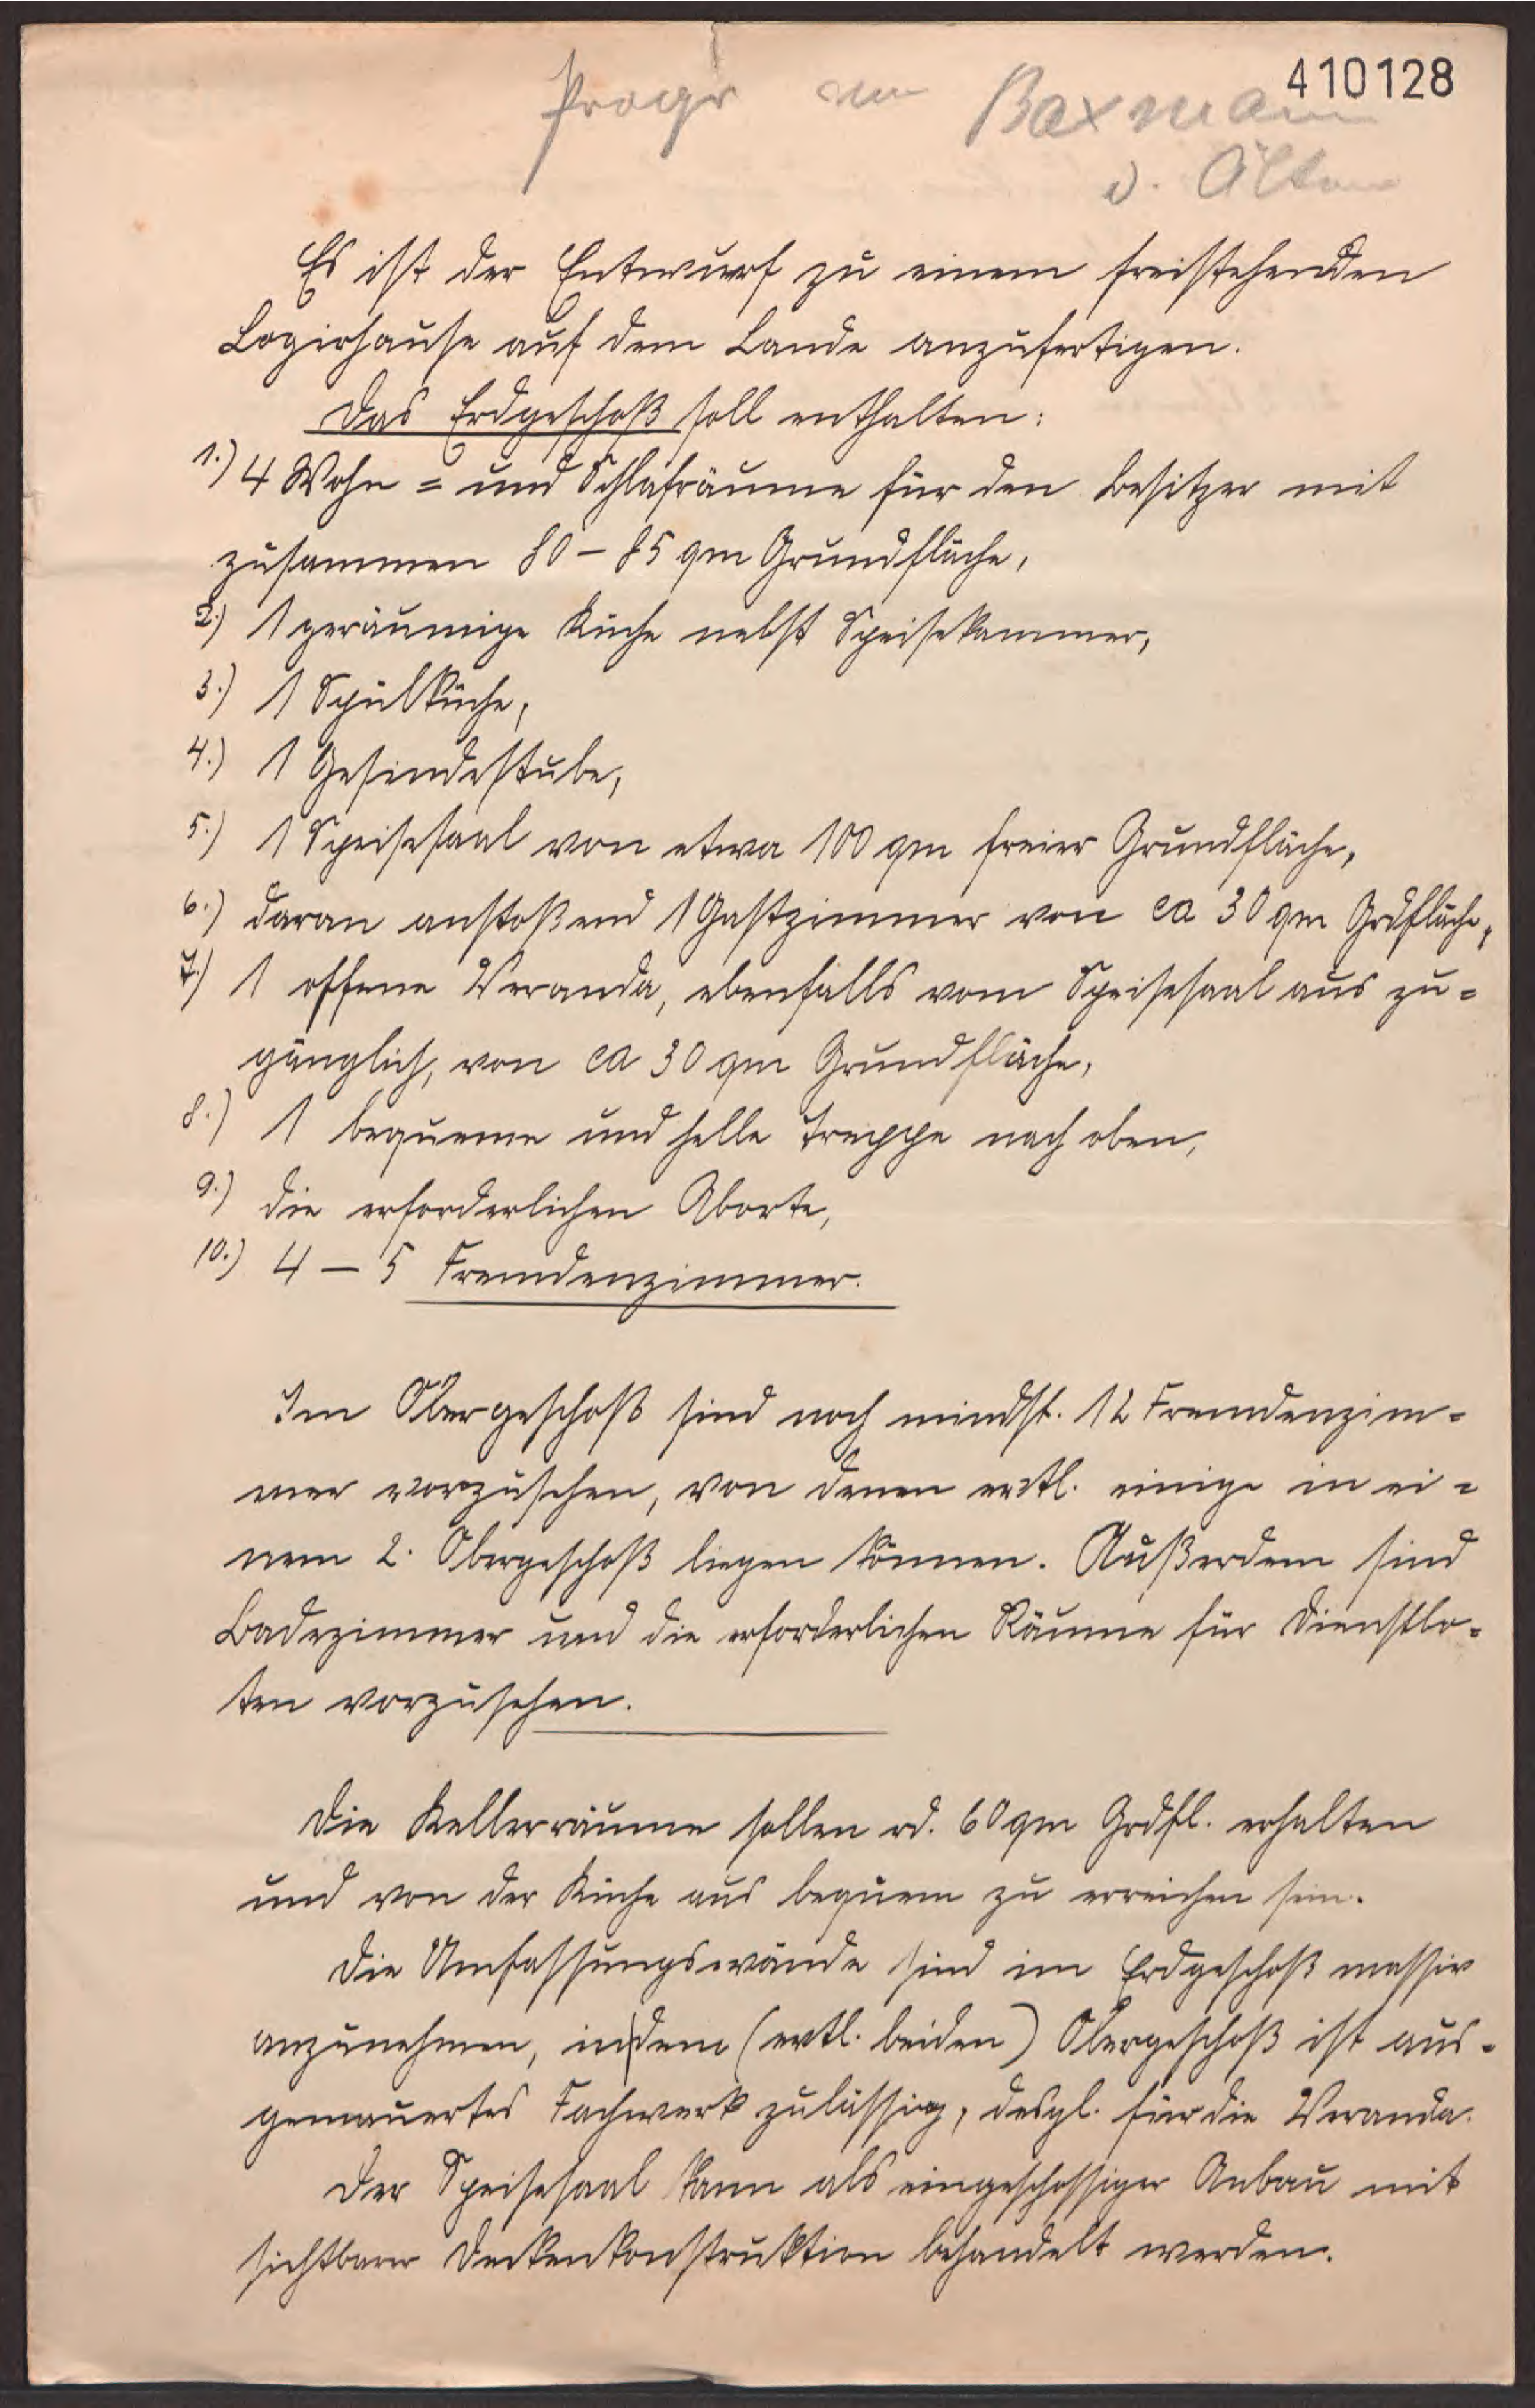 410128
Progr
Baxmann
v. Alten
Es ist der Entwurf zu einem freistehenden
Logirhause auf dem Lande anzufertigen.
Das Erdgeschoß soll enthalten:
1.) 4 Wohn = und Schlafräume für den Besitzer mit
zusammen 80 – 85 qm Grundfläche,
2.) 1 geräumige Küche nebst Speisekammer,
3.) 1 Spülküche,
4.) 1 Gesindestube,
5.) 1 Speisesaal von etwa 100 qm freier Grundfläche,
6.) daran anstoßend 1 Gastzimmer von ca 30 qm Grdfläche,
7.) 1 offene Veranda, ebenfalls vom Speisesaal aus zu=
gänglich, von ca 30 qm Grundfläche,
8.) 1 bequeme und helle Treppe nach oben,
9.) die erforderlichen Aborte,
10.) 4 – 5 Fremdenzimmer.
Im Obergeschoß sind noch mindst. 12 Fremdenzim=
mer vorzusehen, von denen evtl. einige in ei=
nem 2. Obergeschoß liegen können. Außerdem sind
Badezimmer und die erforderlichen Räume für Dienstbo=
ten vorzusehen.
Die Kellerräume sollen rd. 60 qm Grdfl. erhalten
und von der Küche aus bequem zu erreichen sein.
Die Umfassungswände sind im Erdgeschoß massiv
anzunehmen, in dem (evtl. beiden) Obergeschoß ist aus=
gemauertes Fachwerk zulässig, desgl. für die Veranda.
Der Speisesaal kann als eingeschossiger Anbau mit
sichtbarer Deckenkonstruktion behandelt werden.